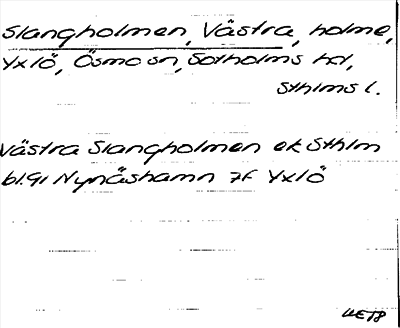 Slangholmen, Västra, holme,
Yxlö, Ösmo sn, Sotholms hd,
Sthlms l.
Västra Slangholmen ek Sthlm
bl.91 Nynäshamn 7f Yxlö